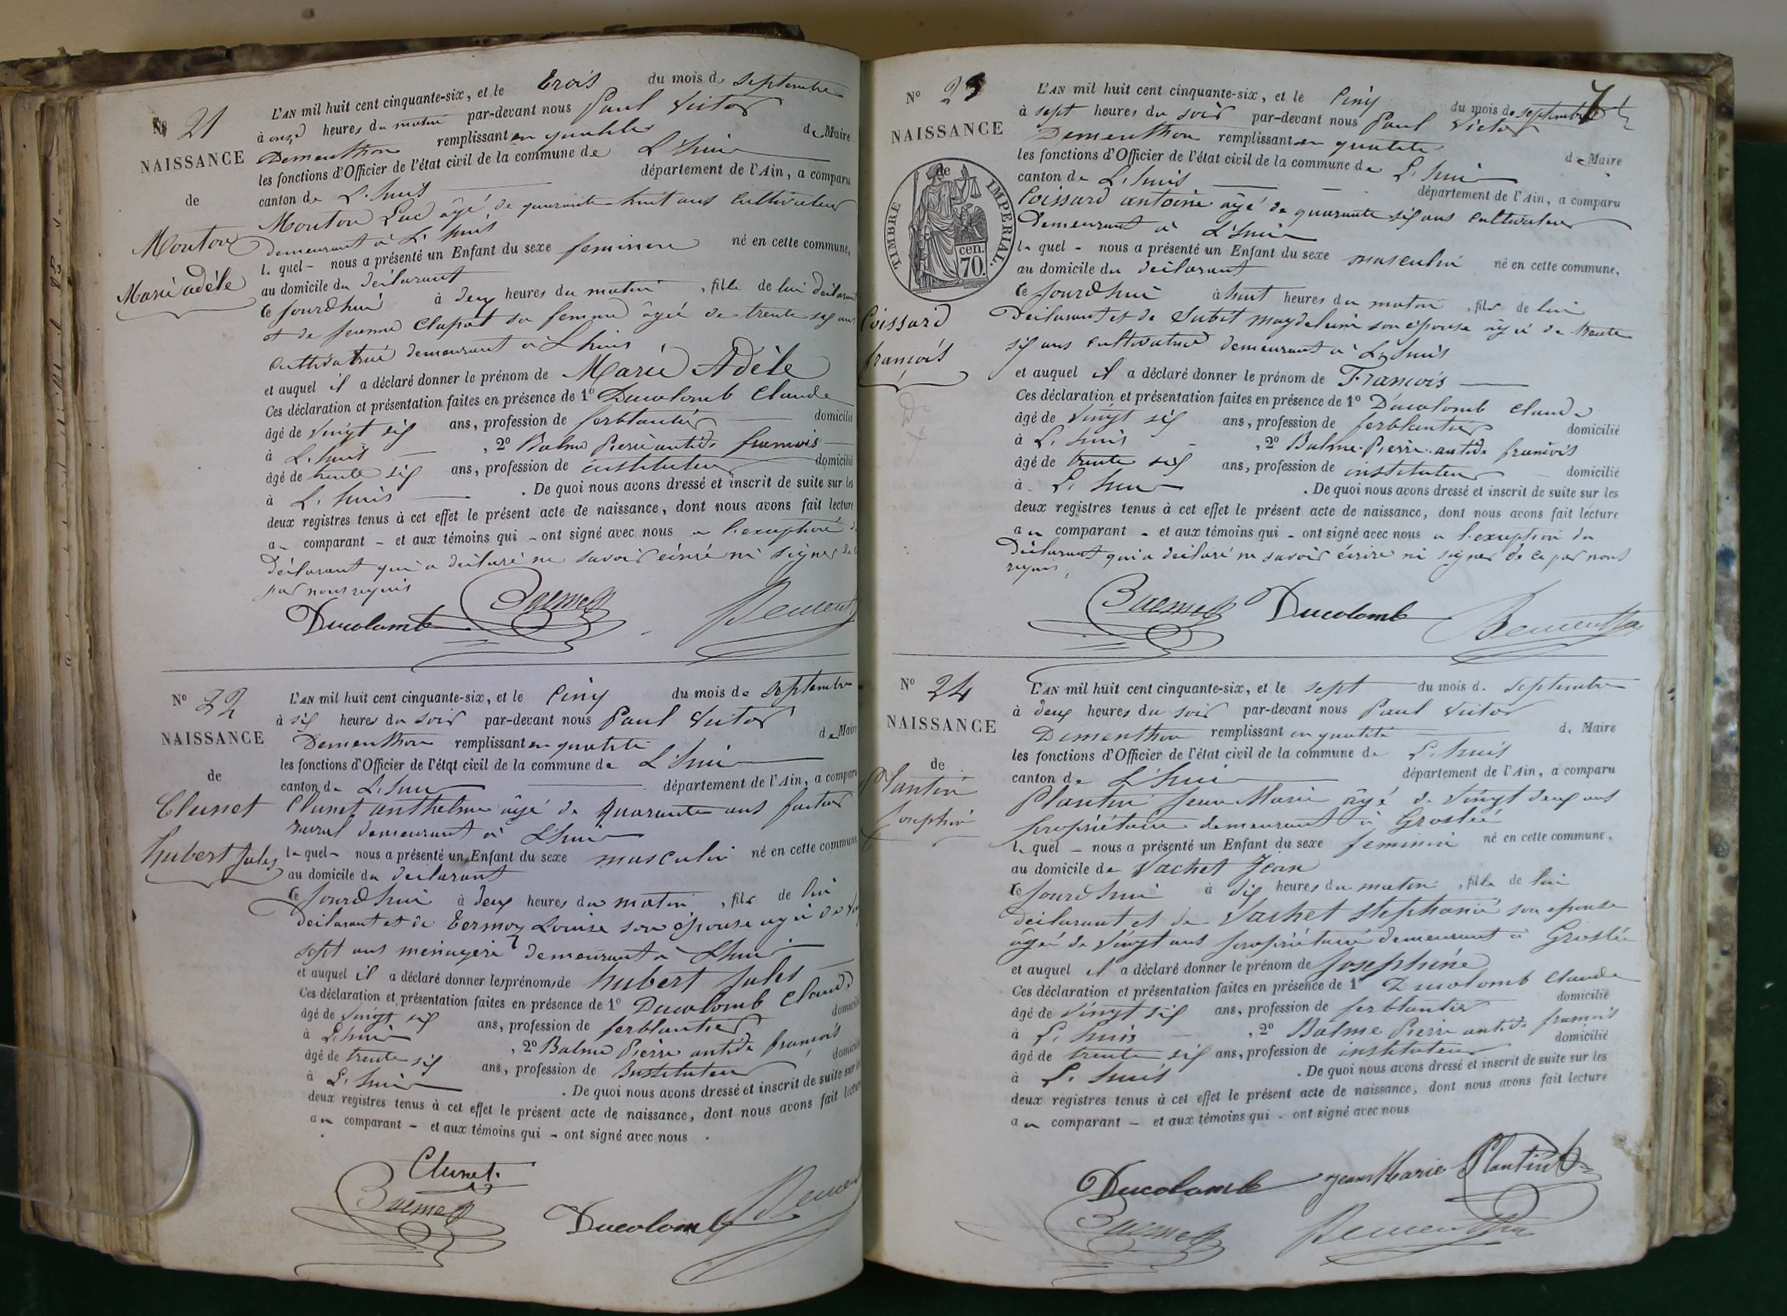 Nº 21
NAISSANCE
de
Mouton
Marie adèle
L'AN mil huit cent cinquante-six, et le trois du mois de septembre
à onze heures du matin par-devant nous Paul Victor
Dementhon remplissant en qualité de Maire
les fonctions d'Officier de l'état civil de la commune de L'huis
canton de L'huis département de l'Ain, a comparu
Mouton Luc âgé de quarante huit ans Cultivateur
demeurant à L'huis
lequel - nous a présenté un Enfant du sexe feminin né en cette commune,
au domicile du déclarant
ce jourd'hui à deux heures du matin, fille de lui déclarant
et de jeanne Clapot sa femme âgée de trente six ans
cultivatrice demeurant à Lhuis
et auquel il a déclaré donner le prénom de Marie Adèle
Ces déclaration et présentation faites en présence de 1º Ducolomb Claude
âgé de vingt six ans, profession de ferblantier domicilié
à L'huis , 2º Balme Pierre antide francois
âgé de trente six ans, profession de instituteur domicilié
à L'huis . De quoi nous avons dressé et inscrit de suite sur les
deux registres tenus à cet effet le présent acte de naissance, dont nous avons fait lecture
au comparant - et aux témoins qui - ont signé avec nous a l'exception
déclarant qui a déclaré ne savoir écrire ni signer de ce
par nous requis
Ducolomb Balme Dement
Nº 22
NAISSANCE
de
Clunet
hubert Jules
L'AN mil huit cent cinquante-six, et le cinq du mois de septembre
à six heures du soir par-devant nous Paul Victor
Dementhon remplissant en qualité de Maire
les fonctions d'Officier de l'état civil de la commune de L'huis
canton de L'huis département de l'Ain, a comparu
Clunet anthelme âgé de quarante ans facteur
rural demeurant à L'huis
lequel - nous a présenté un Enfant du sexe masculin né en cette commune
au domicile du déclarant
ce jourd'hui à deux heures du matin, fils de lui
déclarant et de Termoz Louise son épouse âgée de
sept ans menagère demeurant à Lhuis
et auquel il a déclaré donner les prénoms de hubert Jules
Ces déclaration et présentation faites en présence de 1º Ducolomb Claude
âgé de vingt six ans, profession de ferblantier domicilié
à L'huis , 2º Balme Pierre antide françois
âgé de trente six ans, profession de Instituteur domicilié
à L'huis . De quoi nous avons dressé et inscrit de suite sur les
deux registres tenus à cet effet le présent acte de naissance, dont nous avons fait lecture
au comparant - et aux témoins qui - ont signé avec nous .
Clunet
Balme Ducolomb Demen
7
Nº 23
NAISSANCE
de
TIMBRE IMPERIAL.
cen.
70.
Coissard
françois
L'AN mil huit cent cinquante-six, et le cinq du mois de septembre
à sept heures du soir par-devant nous Paul Victor
Dementhon remplissant en qualité de Maire
les fonctions d'Officier de l'état civil de la commune de L'huis
canton de L'huis département de l'Ain, a comparu
Coissard antoine âgé de quarante six ans cultivateur
demeurant à L'huis
lequel - nous a présenté un Enfant du sexe masculin né en cette commune,
au domicile du déclarant
ce jourd'hui à huit heures du matin, fils de lui
déclarant et de Subit magdeleine son épouse âgée de trente
six ans cultivatrice demeurant à L'huis
et auquel il a déclaré donner le prénom de François
Ces déclaration et présentation faites en présence de 1º Ducolomb Claude
âgé de vingt six ans, profession de ferblantier domicilié
à L'huis , 2º Balme Pierre antide françois
âgé de trente six ans, profession de instituteur domicilié
à L'huis . De quoi nous avons dressé et inscrit de suite sur les
deux registres tenus à cet effet le présent acte de naissance, dont nous avons fait lecture
au comparant - et aux témoins qui - ont signé avec nous a l'exception du
déclarant qui a déclaré ne savoir écrire ni signer de ce par nous
requis,
Balme Ducolomb Dementhon
Nº 24
NAISSANCE
de
Plantin
Josephine
L'AN mil huit cent cinquante-six, et le sept du mois de septembre
à deux heures du soir par-devant nous Paul Victor
Dementhon remplissant en qualité de Maire
les fonctions d'Officier de l'état civil de la commune de L'huis
canton de L'huis département de l'Ain, a comparu
Plantin Jean Marie âgé de vingt deux ans
propriétaire demeurant à Groslée
lequel - nous a présenté un Enfant du sexe feminin né en cette commune,
au domicile de Vachet Jean
ce jourd'hui à dix heures du matin, fille de lui
déclarant et de Vachet Stephanie son epouse
âgée de vingt ans propriétaire demeurant à Groslée
et auquel il a déclaré donner le prénom de Josephine
Ces déclaration et présentation faites en présence de 1º Ducolomb Claude
âgé de vingt six ans, profession de ferblantier domicilié
à L'huis , 2º Balme Pierre antide françois
âgé de trente six ans, profession de instituteur domicilié
à L'huis . De quoi nous avons dressé et inscrit de suite sur les
deux registres tenus à cet effet le présent acte de naissance, dont nous avons fait lecture
au comparant - et aux témoins qui - ont signé avec nous
Ducolomb jean Marie Plantin
Balme Dementhon